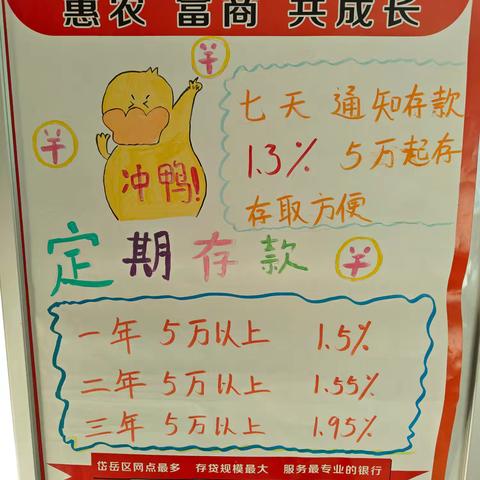 惠农 富商 共成长
七天 通知存款
1.3% 5万起存
存取方便
冲鸭!
定期存款
一年 5万以上 1.5%
二年 5万以上 1.55%
三年 5万以上 1.95%
岱岳区网点最多 存贷规模最大 服务最专业的银行